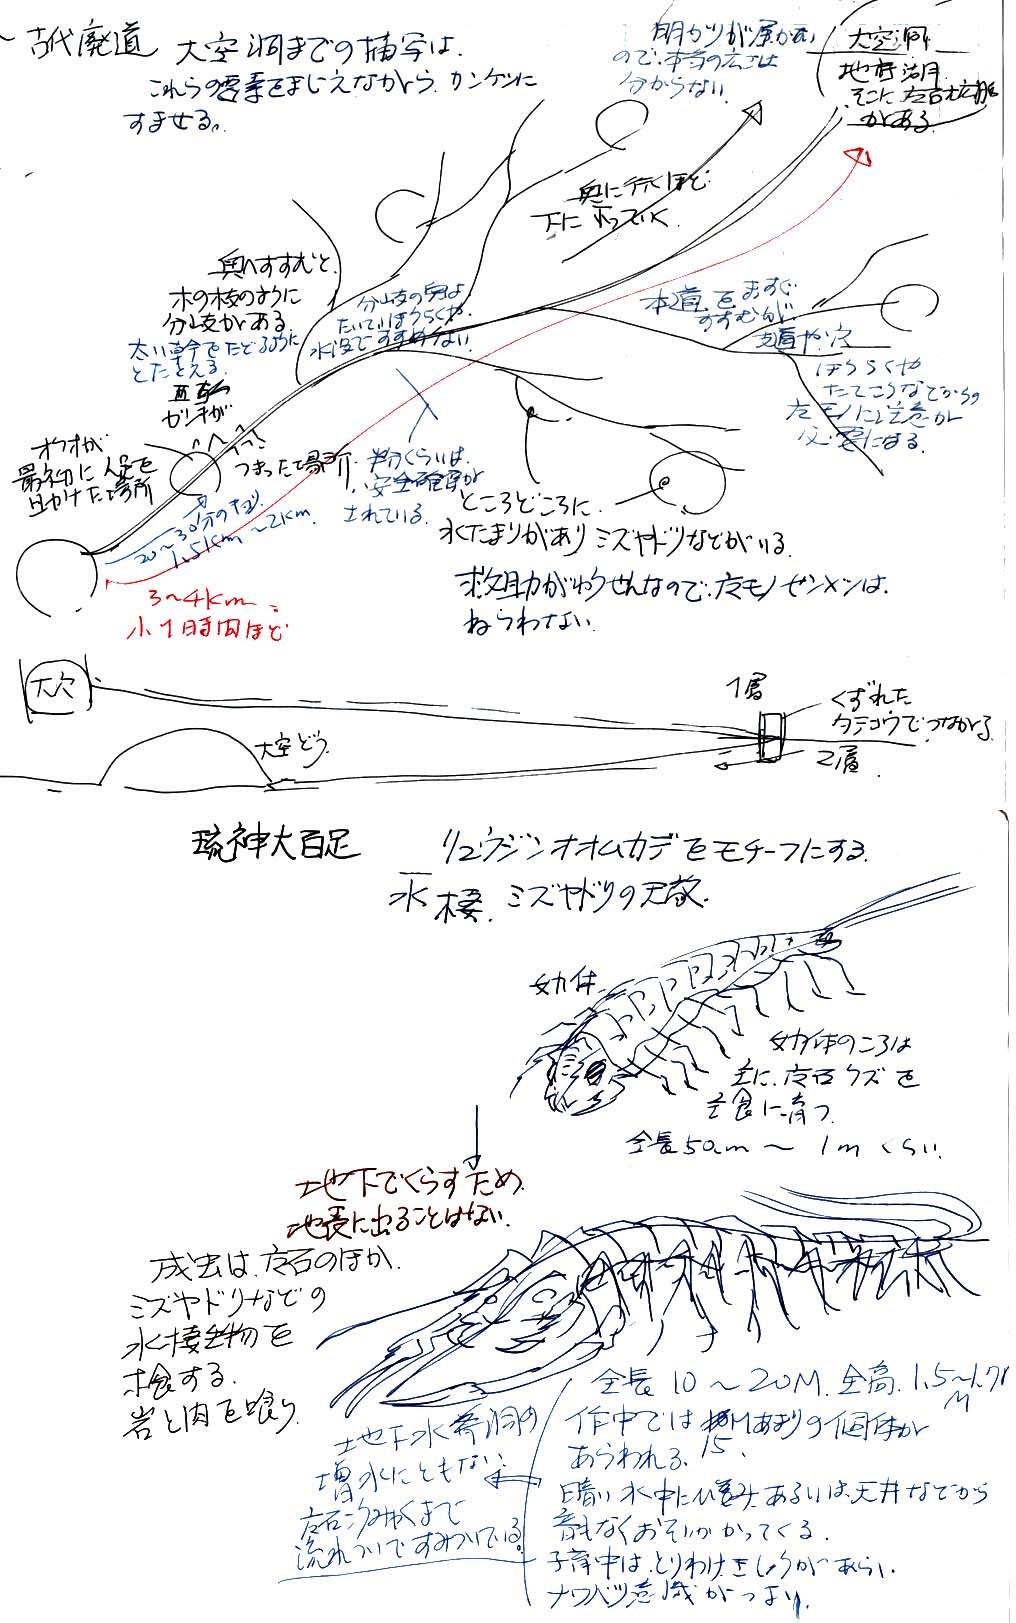 古代廃道
大空洞までの描写は、
これらの要素をまじえながら、カンケツに
すませる。
明カリが届かない
ので、本当の広さは
分からない
大空洞
地底湖
そこに
がある
奥に行くほど
下に下っていく
奥へすすむと、
木の枝のように
分岐がある
太い幹をたどるように
とたとえる。
分岐の奥は
たいていほうらくや
水没ですすめない
本道をまっすぐ
すすむが、
支道や穴
ほうらくや
たてこうなどからの
左モノに注意が
必要になる。
ガンキが
オウオが
最初に人足を
見かけた場所
つまった場所
半分くらいは、
安全確保が
されている
20〜30分のキョリ
1.5km〜2km
3〜4km
小1時間ほど
ところどころに
水たまりがありミズヤドリなどがいる。
救助がゆうせんなので、左モノゼンメンは、
ねらわない
大穴
大空どう
1層
くずれた
タテコウでつながる
2層
琉神大百足
リュウジンオオムカデをモチーフにする
水棲、ミズヤドリの天敵、
幼体
幼体のころは
主に、左石クズを
主食に育つ
全長50cm〜1mくらい
地下でくらすため、
地表に出ることはない。
成虫は、左石のほか、
ミズヤドリなどの
水棲生物を
捕食する。
岩と肉を喰う
全長10〜20M、全高1.5〜1.7
M
作中では15Mあまりの個体が
あらわれる。
暗い水中にひそみ、あるいは、天井などから
音もなくおそいかかってくる。
子育中は、とりわけきしょうがあらい
ナワバリ意識がつよい
地下水脈の
増水にともない、
流れついてすみついている。